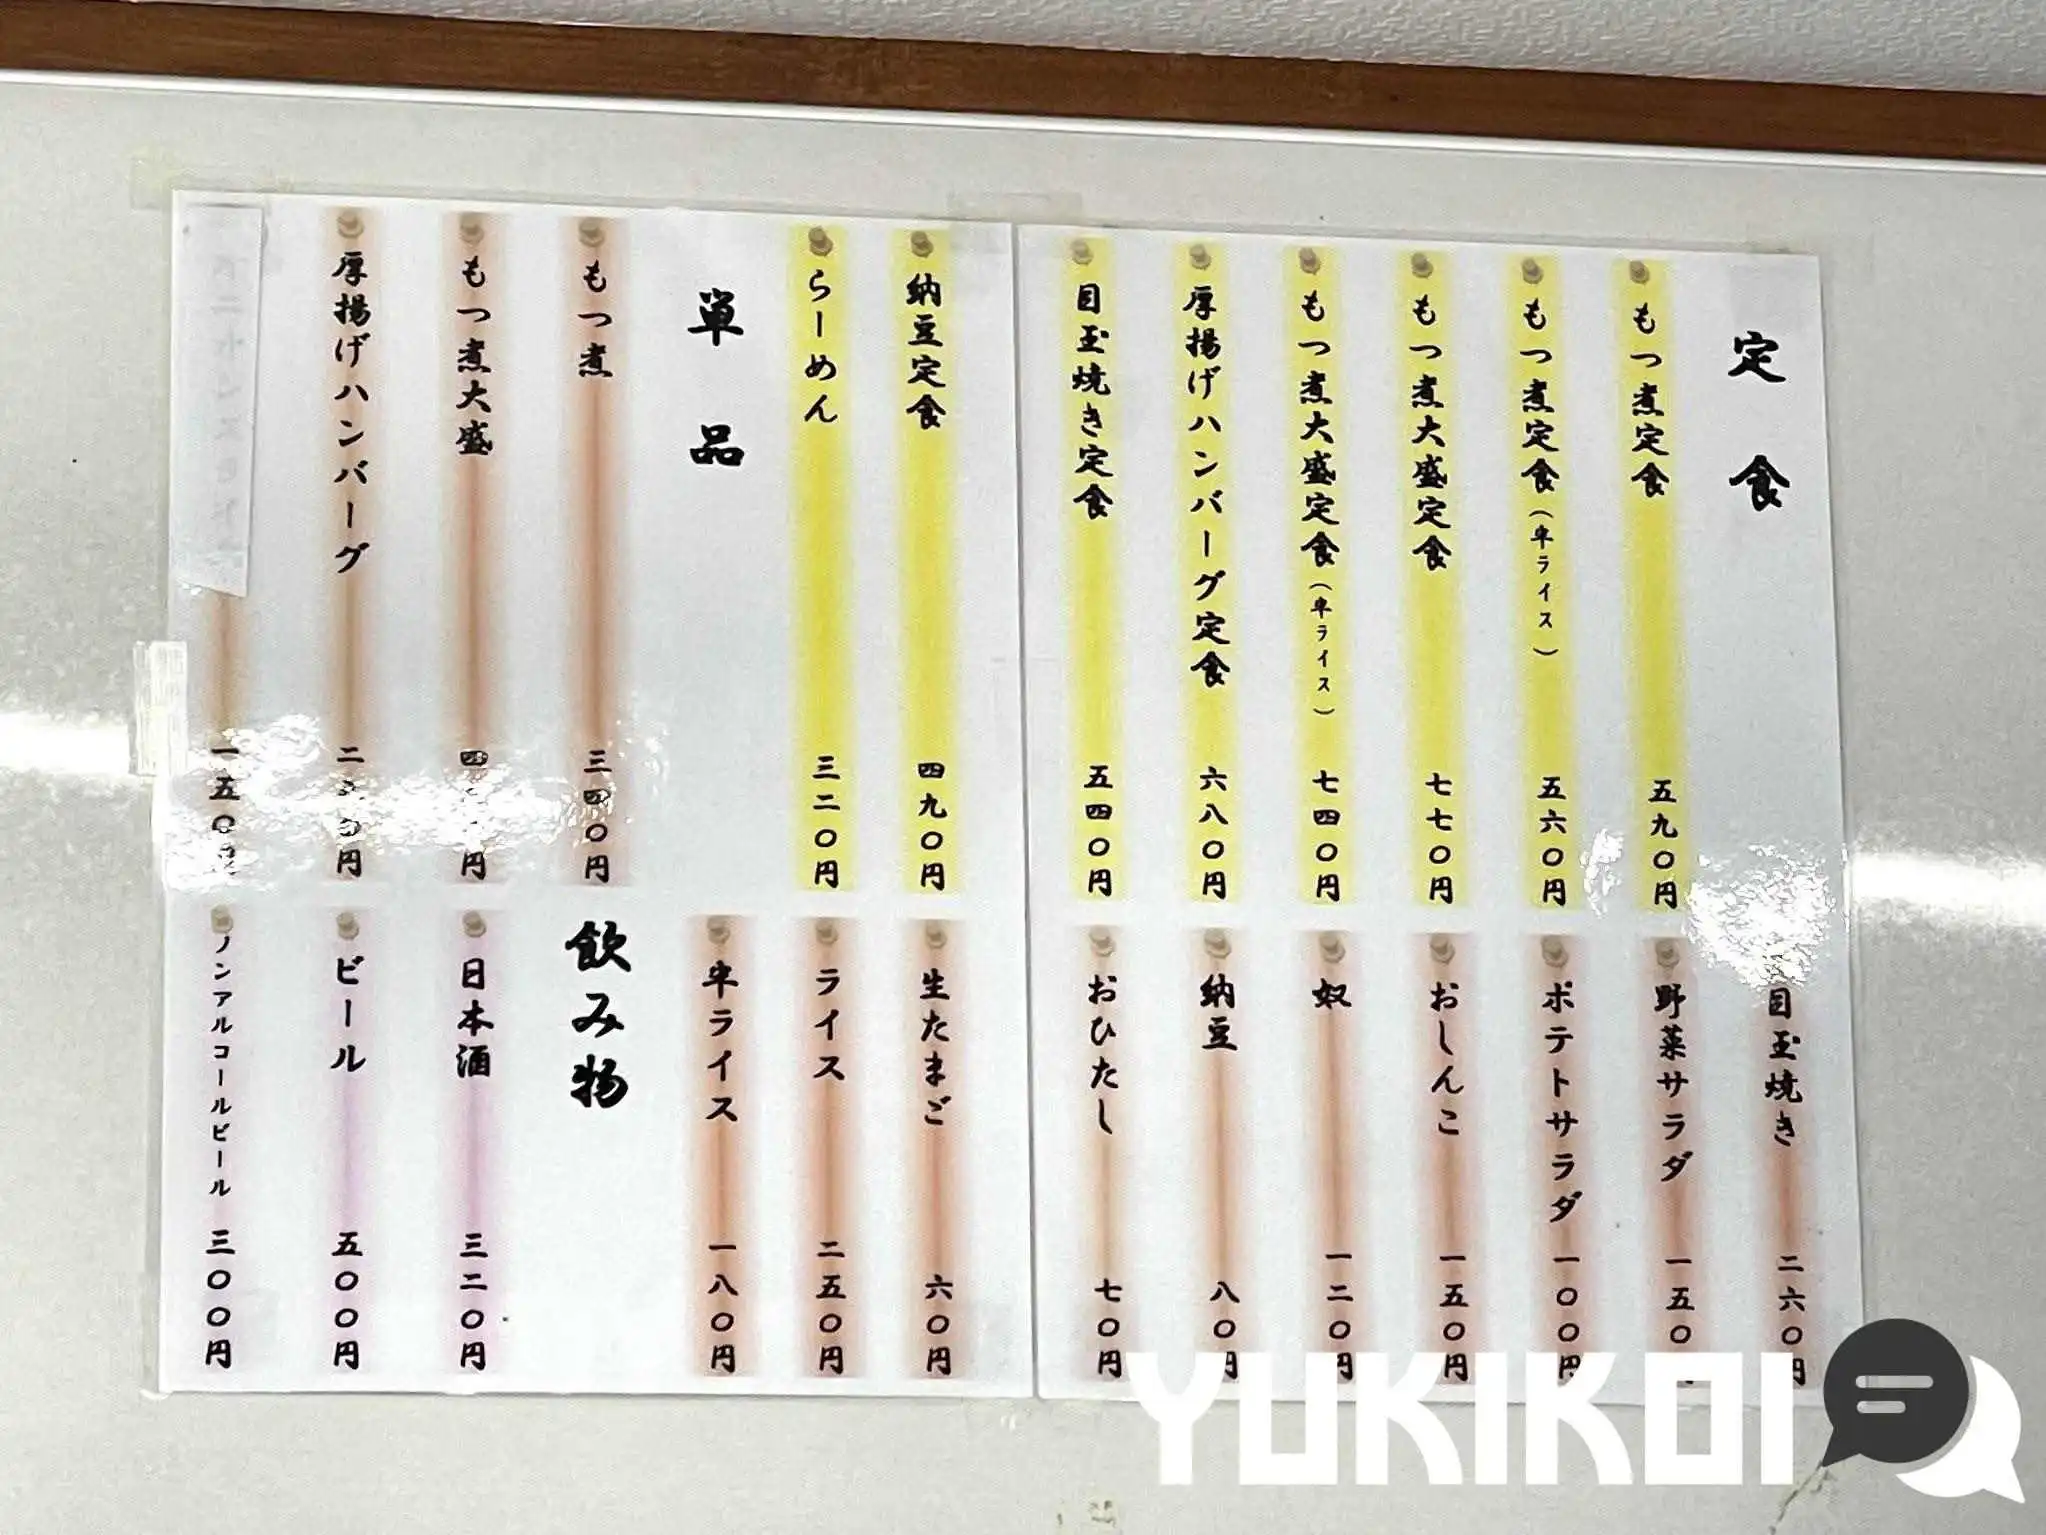 定食
もつ煮定食 五九〇円
もつ煮定食（半ライス） 五六〇円
もつ煮大盛定食 七七〇円
もつ煮大盛定食（半ライス） 七四〇円
厚揚げハンバーグ定食 六八〇円
目玉焼き定食 五四〇円
納豆定食 四九〇円
らーめん 三二〇円
単品
もつ煮 三四〇円
もつ煮大盛 四 円
厚揚げハンバーグ 二 〇円
一五〇円
目玉焼き 二六〇円
野菜サラダ 一五〇
ポテトサラダ 一〇〇円
おしんこ 一五〇円
奴 一二〇円
納豆 八〇円
おひたし 七〇円
生たまご 六〇円
ライス 二五〇円
半ライス 一八〇円
飲み物
日本酒 三二〇円
ビール 五〇〇円
ノンアルコールビール 三〇〇円
YUKIKOI